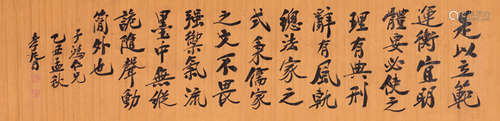 是以立範
運衡宜明
體要必使之
理有典刑
辭有風軌
總法家之
式秉儒家
之文不畏
强禦氣流
墨中無縱
詭隨聲動
簡外也
仁兄
乙丑孟秋